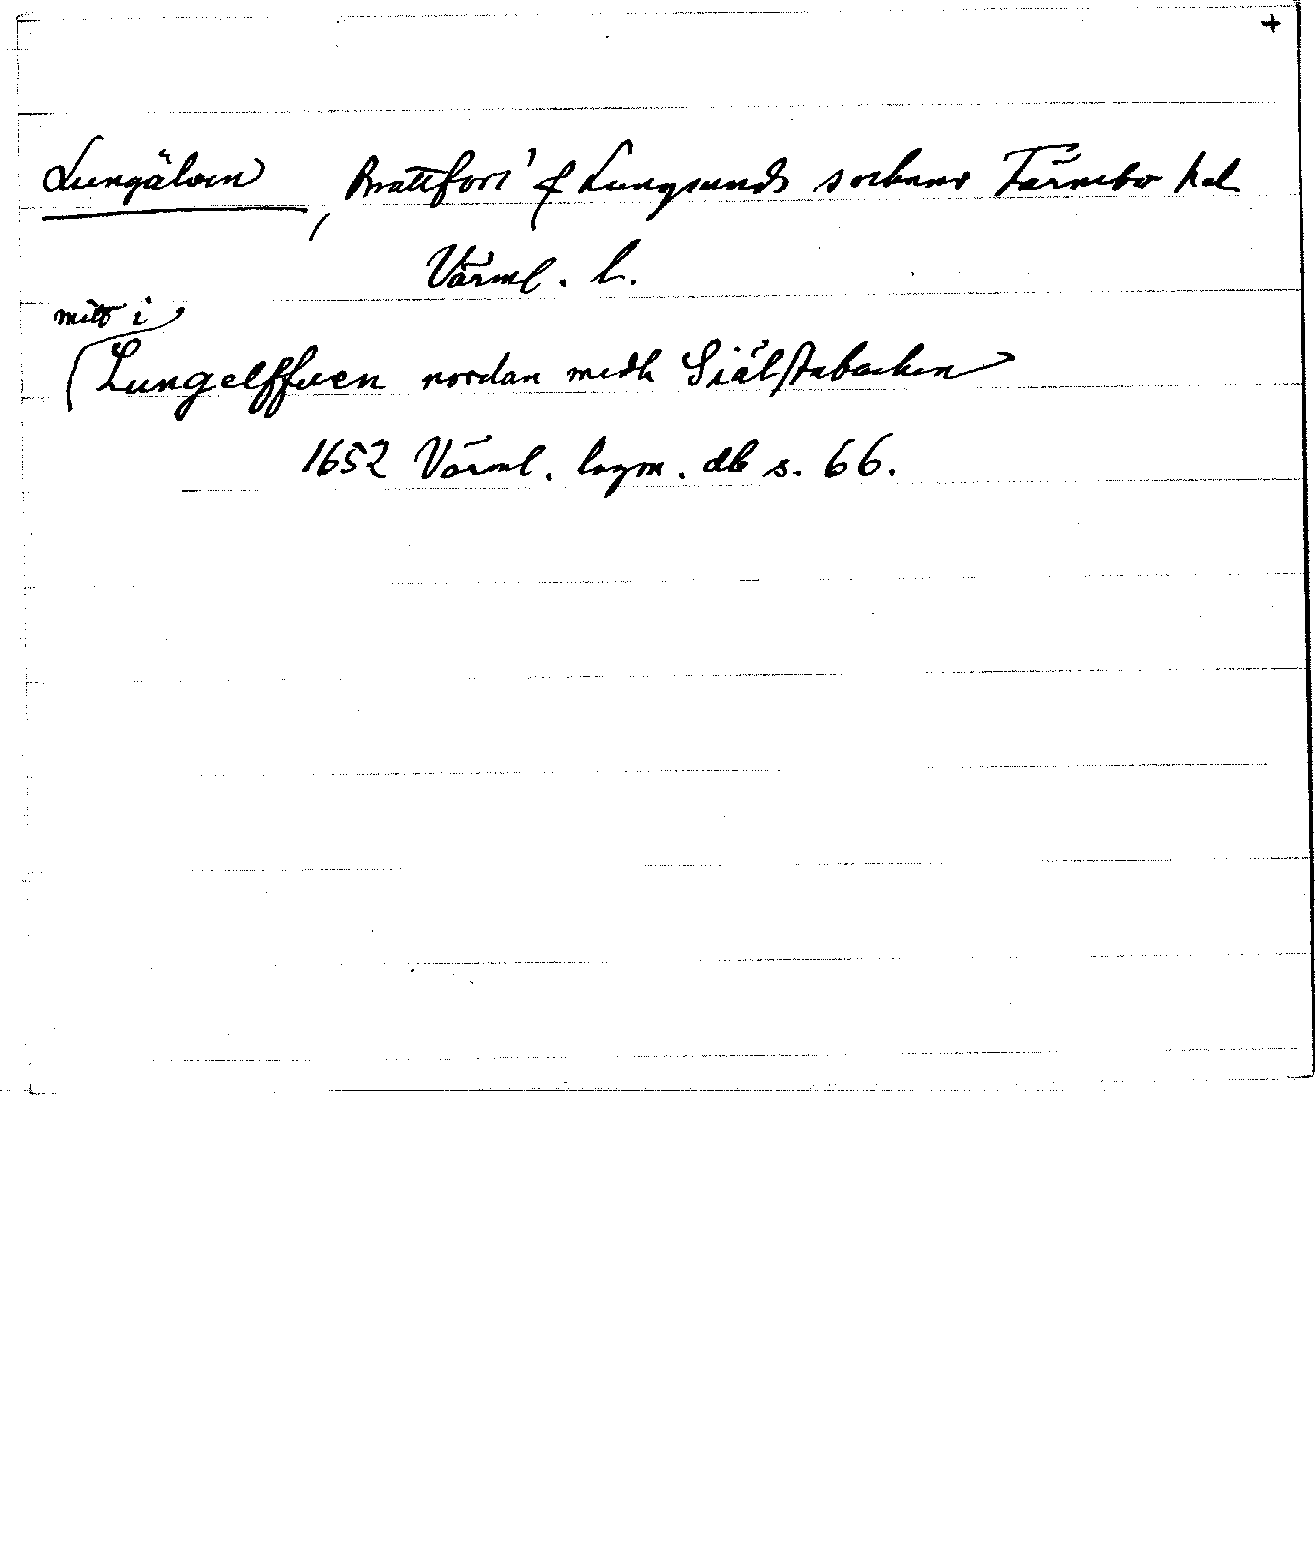 +
Lungälven, Brattfors & Lungsunds socknar Färnebo hd
Värml. l.
mitt i
Lungelffuen nordan medh Siälstabacken
1652 Värml. lagm. db s. 66.